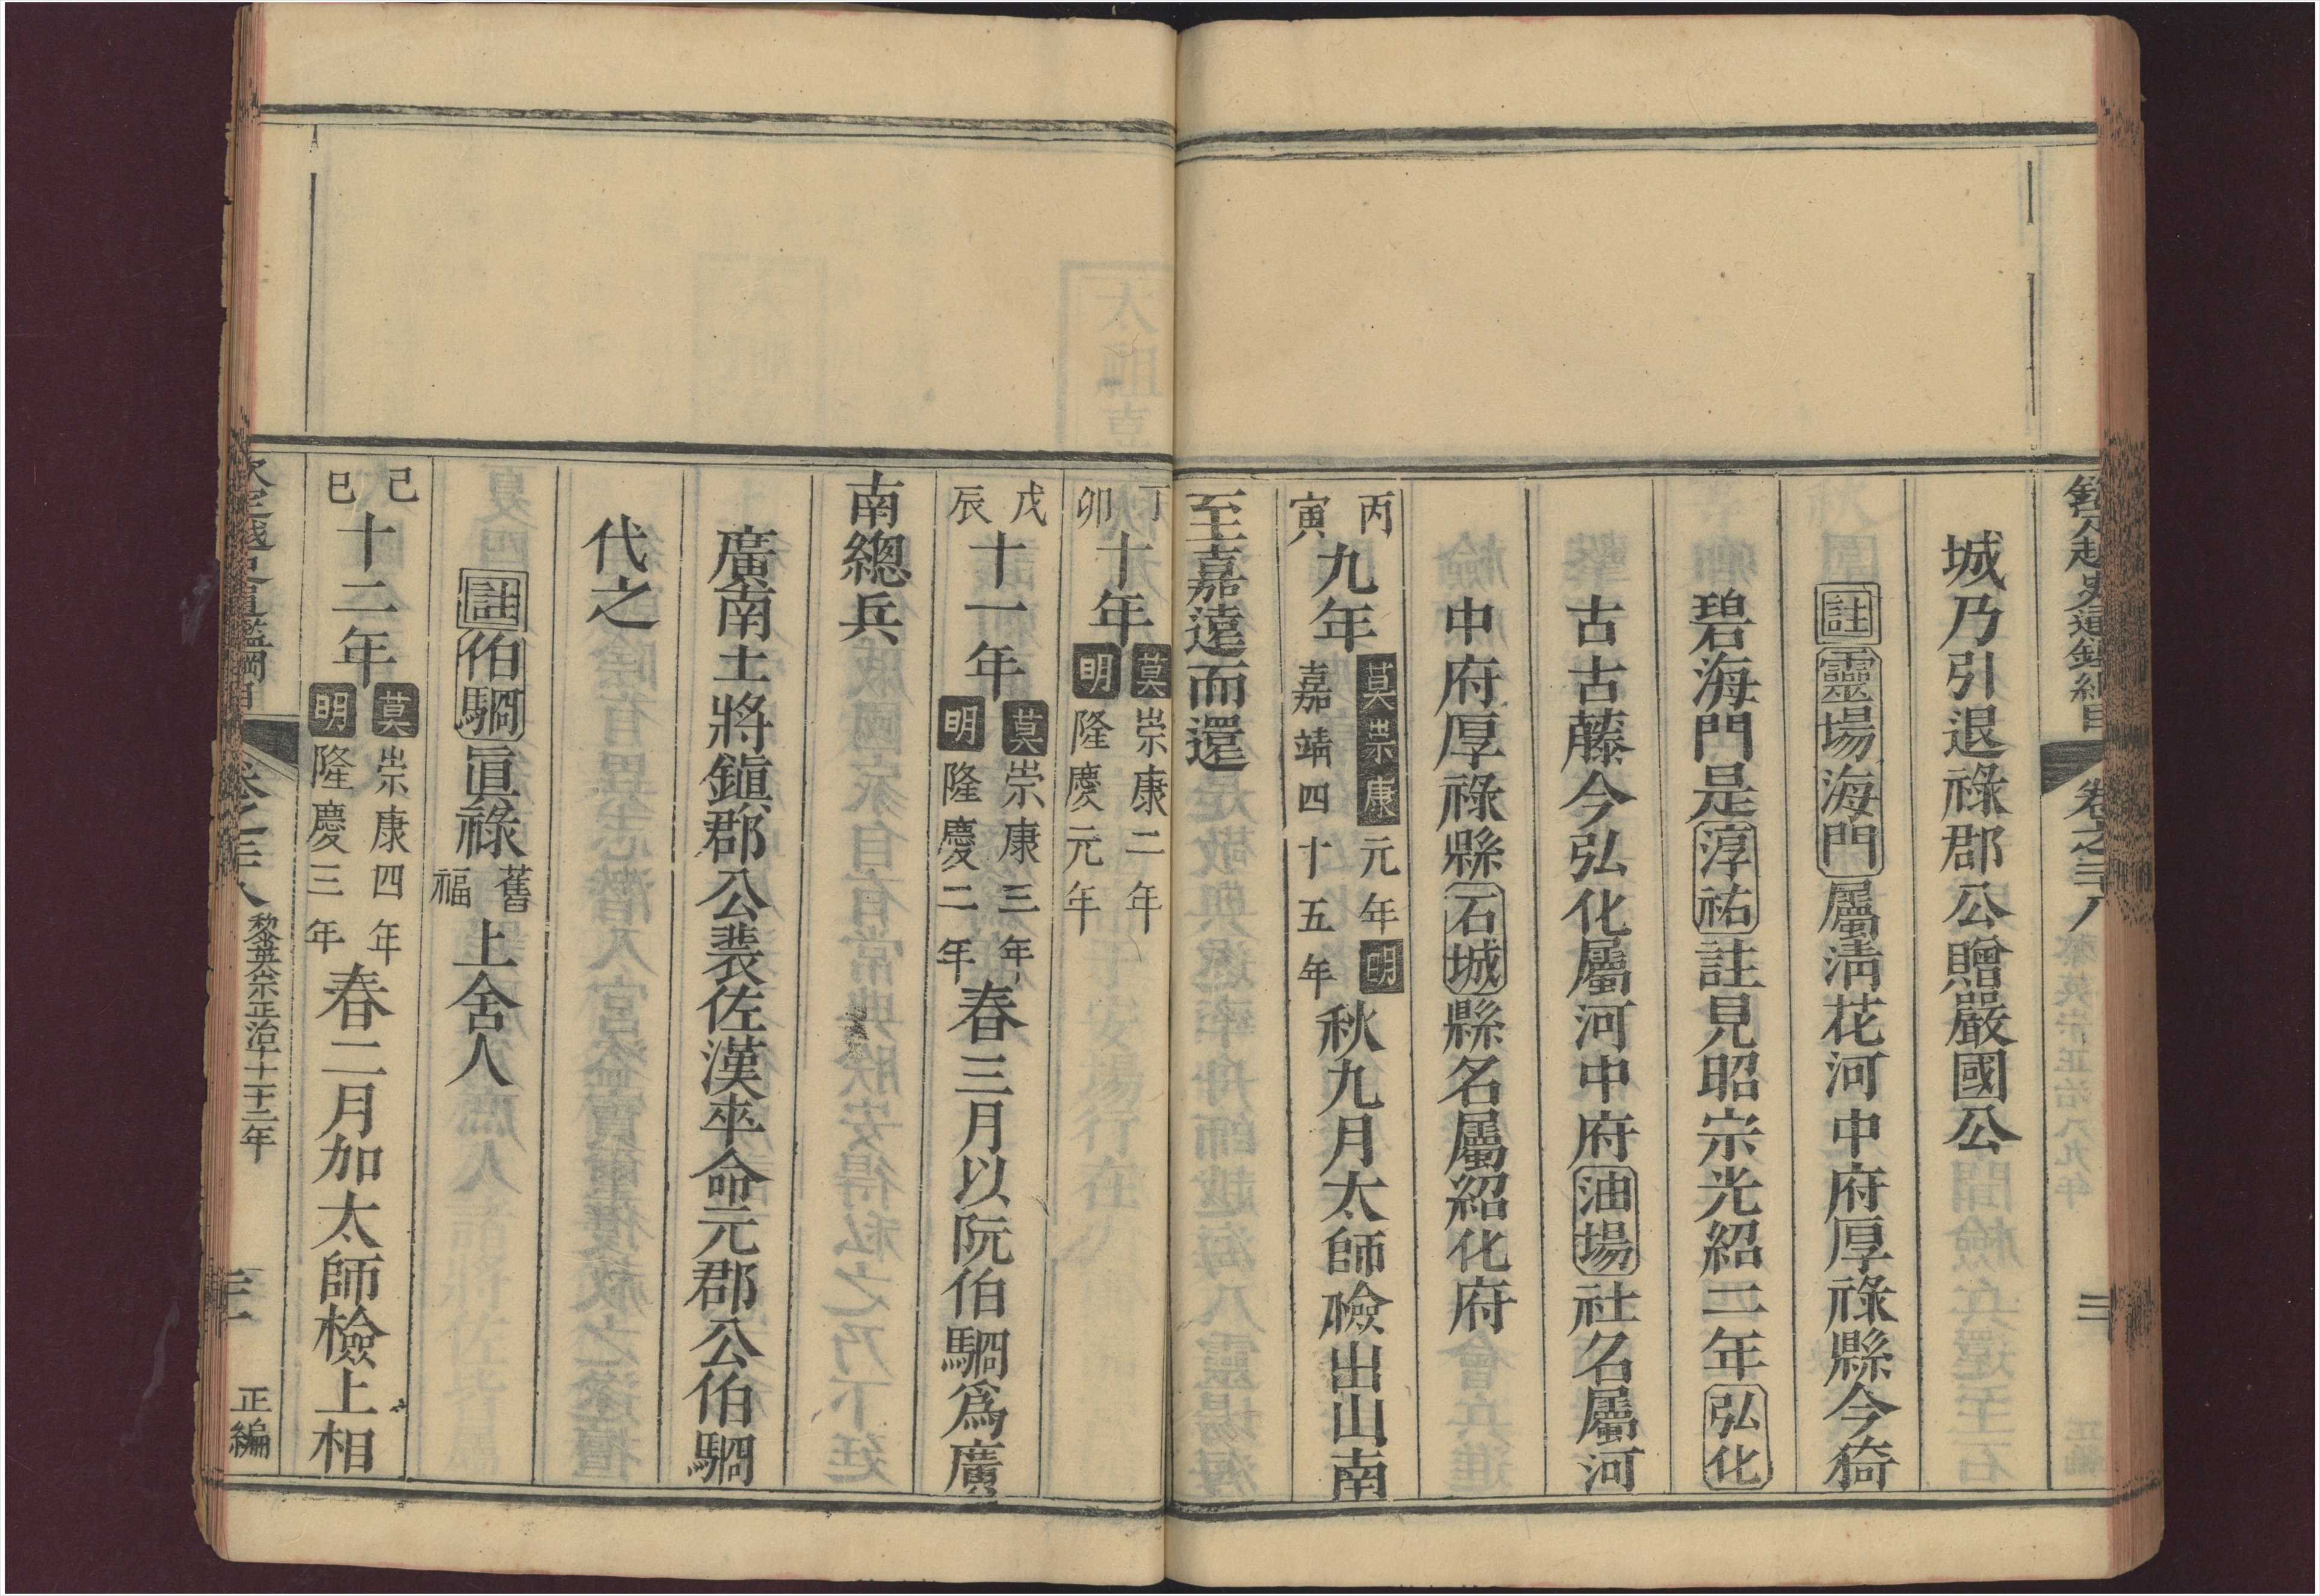 欽定越史通鑑綱目 卷之二十八 黎英宗正治八九年 三
城乃引退祿郡公贈嚴國公
註靈場海門屬淸花河中府厚祿縣今猗
碧海門是淳祐註見昭宗光紹二年弘化
古古藤今弘化屬河中府油場社名屬河
中府厚祿縣石城縣名屬紹化府
丙寅九年莫崇康元年明嘉靖四十五年秋九月太師檢出山南
至嘉遠而還
丁卯十年莫崇康二年明隆慶元年
戊辰十一年莫崇康三年明隆慶二年春三月以阮伯駉爲廣
南總兵
廣南土將鎭郡公裴佐漢卒命元郡公伯駉
代之
註伯駉眞祿舊福上舍人
己巳十二年莫崇康四年明隆慶三年春二月加太師檢上相
欽定越史通鑑綱目 卷之二十八 黎英宗正治十十一十二年 正編